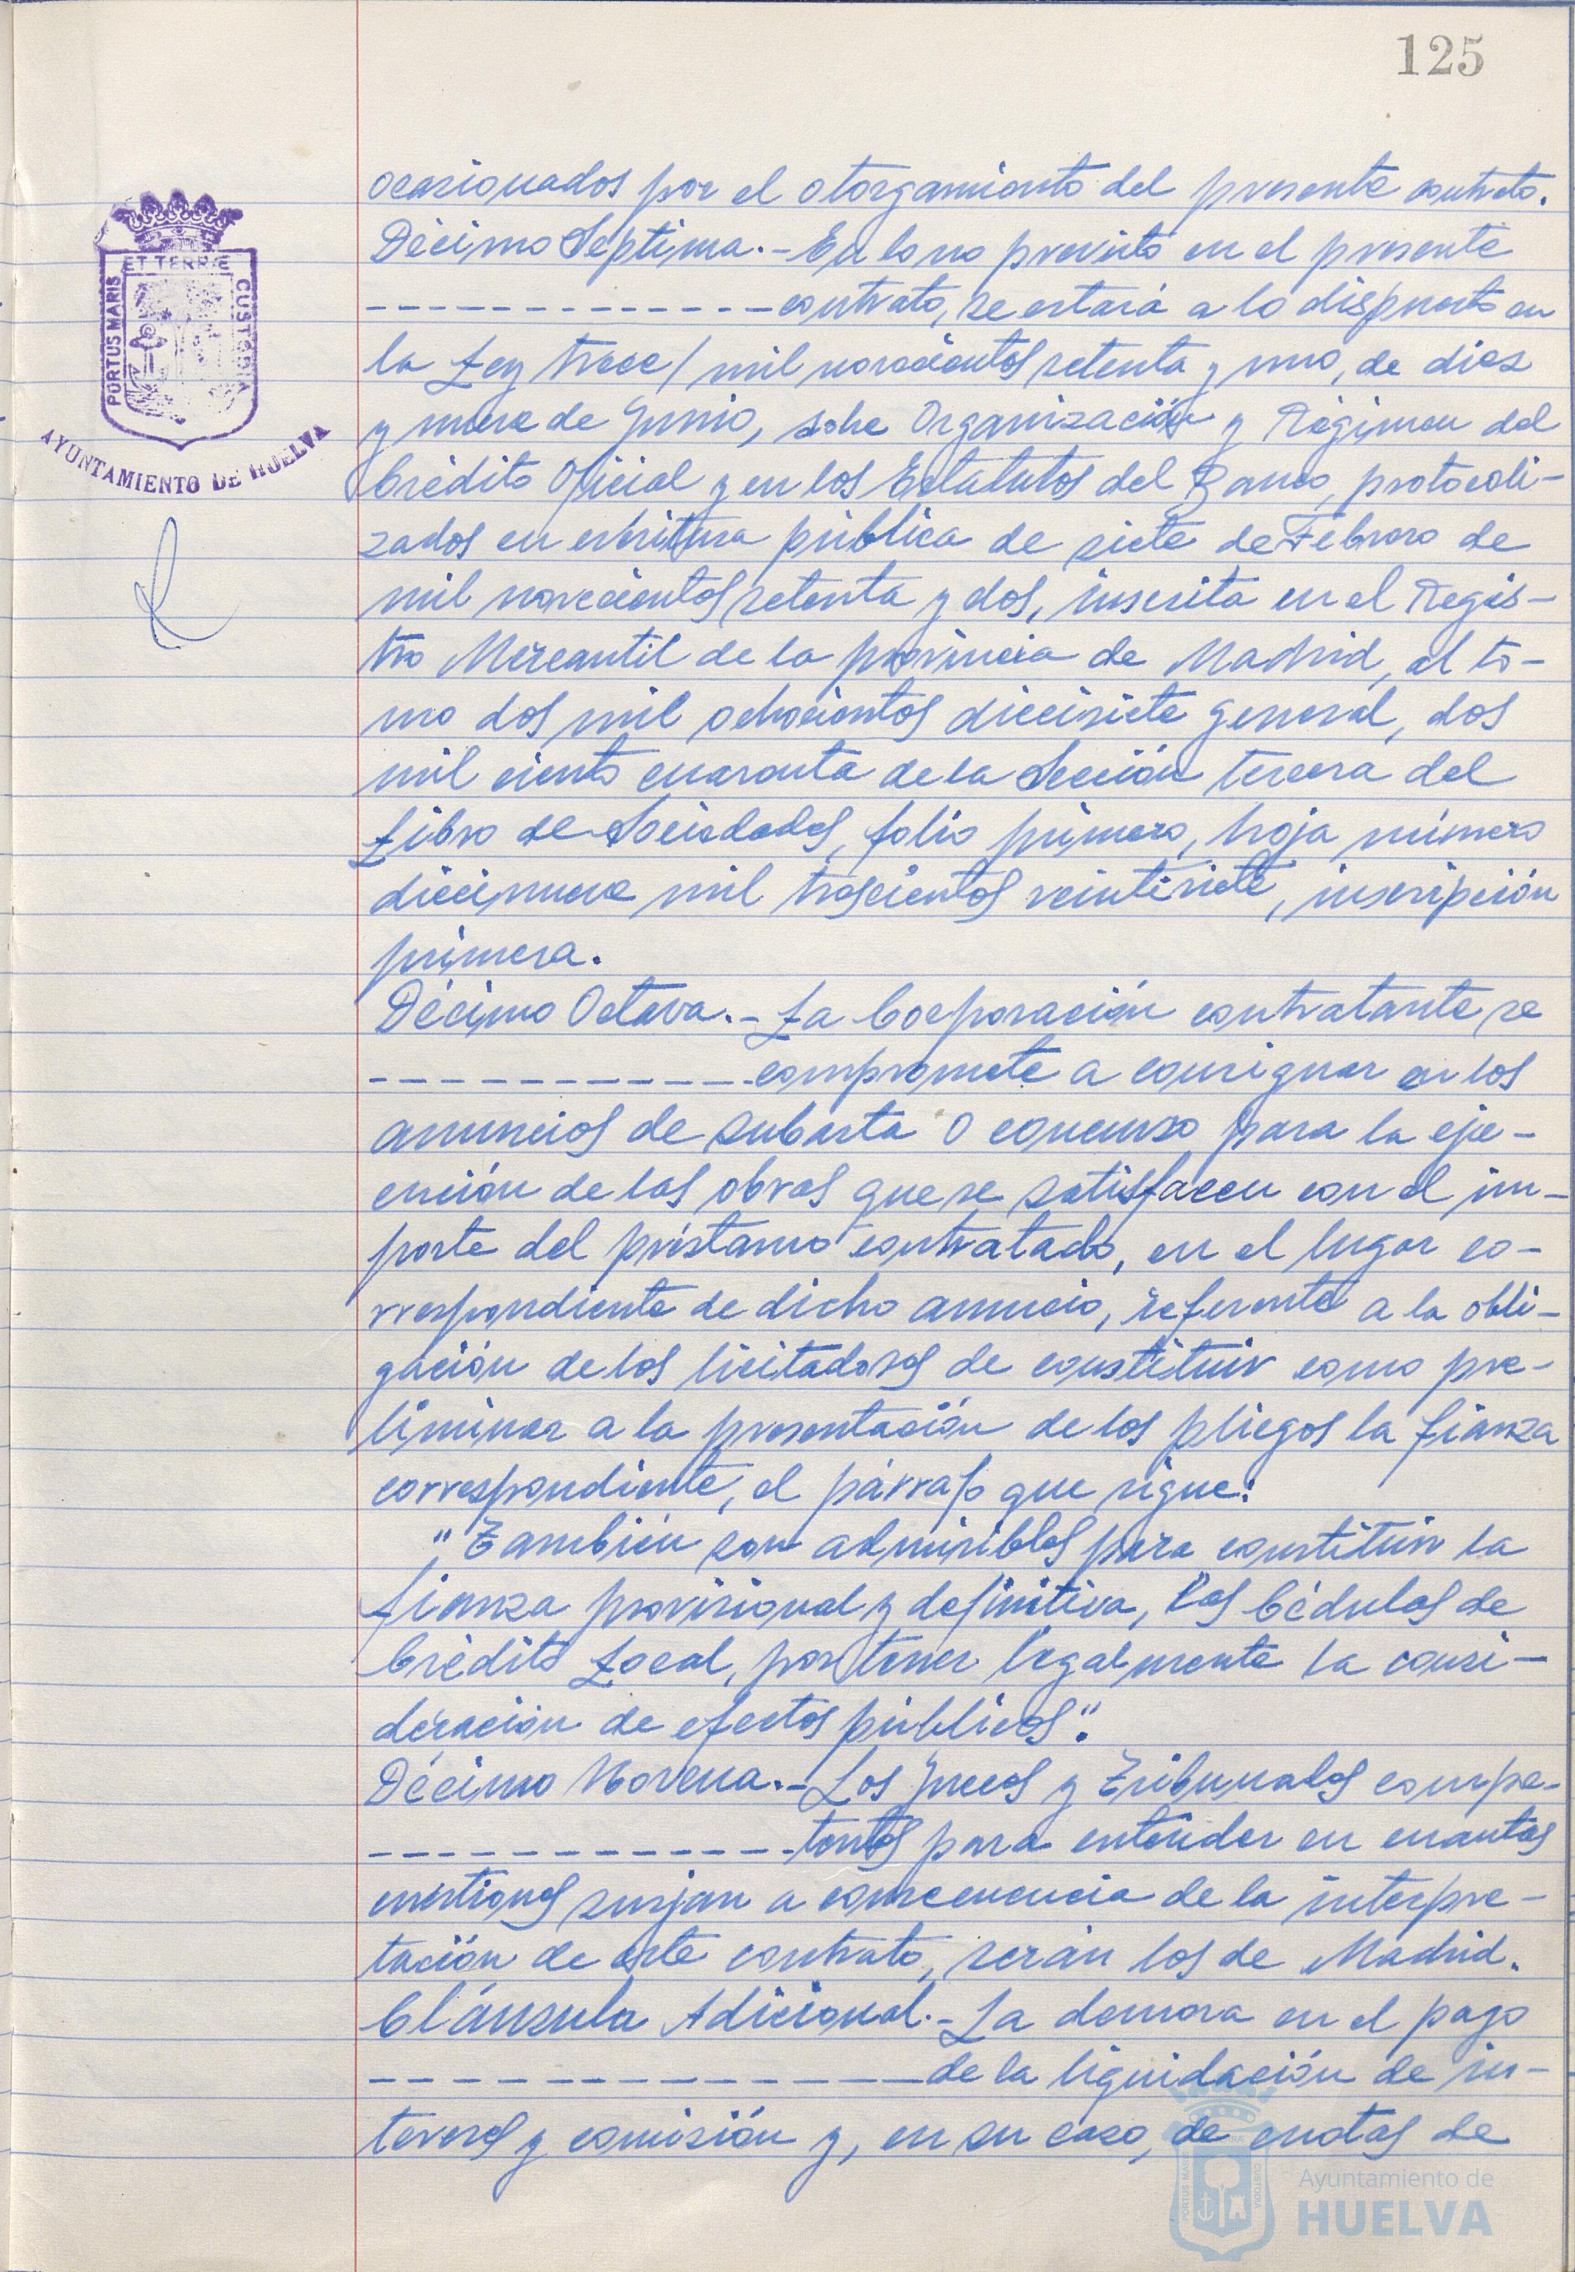 125
ocasionados por el otorgamiento del presente contrato.
Décimo Séptima.- En lo no previsto en el presente
------------- contrato, se estará a lo dispuesto en
la Ley trece/mil novecientos setenta y uno, de diez
y nueve de Junio, sobre Organización y Régimen del
Crédito Oficial y en los Estatutos del Banco, protocoli-
zados en escritura pública de siete de Febrero de
mil novecientos setenta y dos, inscrita en el Regis-
tro Mercantil de la provincia de Madrid, al to-
mo dos mil ochocientos diecisiete general, dos
mil ciento cuarenta de la Sección tercera del
Libro de Sociedades, folio primero, hoja número
diecinueve mil trescientos veintisiete, inscripción
primera.
Décimo Octava.- La Corporación contratante se
------------ compromete a consignar en los
anuncios de subasta o concurso para la eje-
cución de las obras que se satisfacen con el im-
porte del préstamo contratado, en el lugar co-
rrespondiente de dicho anuncio, referente a la obli-
gación de los licitadores de constituir como pre-
liminar a la presentación de los pliegos la fianza
correspondiente, el párrafo que sigue:
"También son admisibles para constituir la
fianza provisional y definitiva, las Cédulas de
Crédito Local, por tener legalmente la consi-
deración de efectos públicos".
Décimo Novena.- Los Jueces y Tribunales compe-
------------- tentes para entender en cuantas
cuestiones surjan a consecuencia de la interpre-
tación de este contrato, serán los de Madrid.
Cláusula Adicional.- La demora en el pago
---------------- de la liquidación de in-
tereses y comisión y, en su caso, de cuotas de
PORTUS MARIS ET TERRÆ CUSTODIA
AYUNTAMIENTO DE HUELVA
Ayuntamiento de
HUELVA